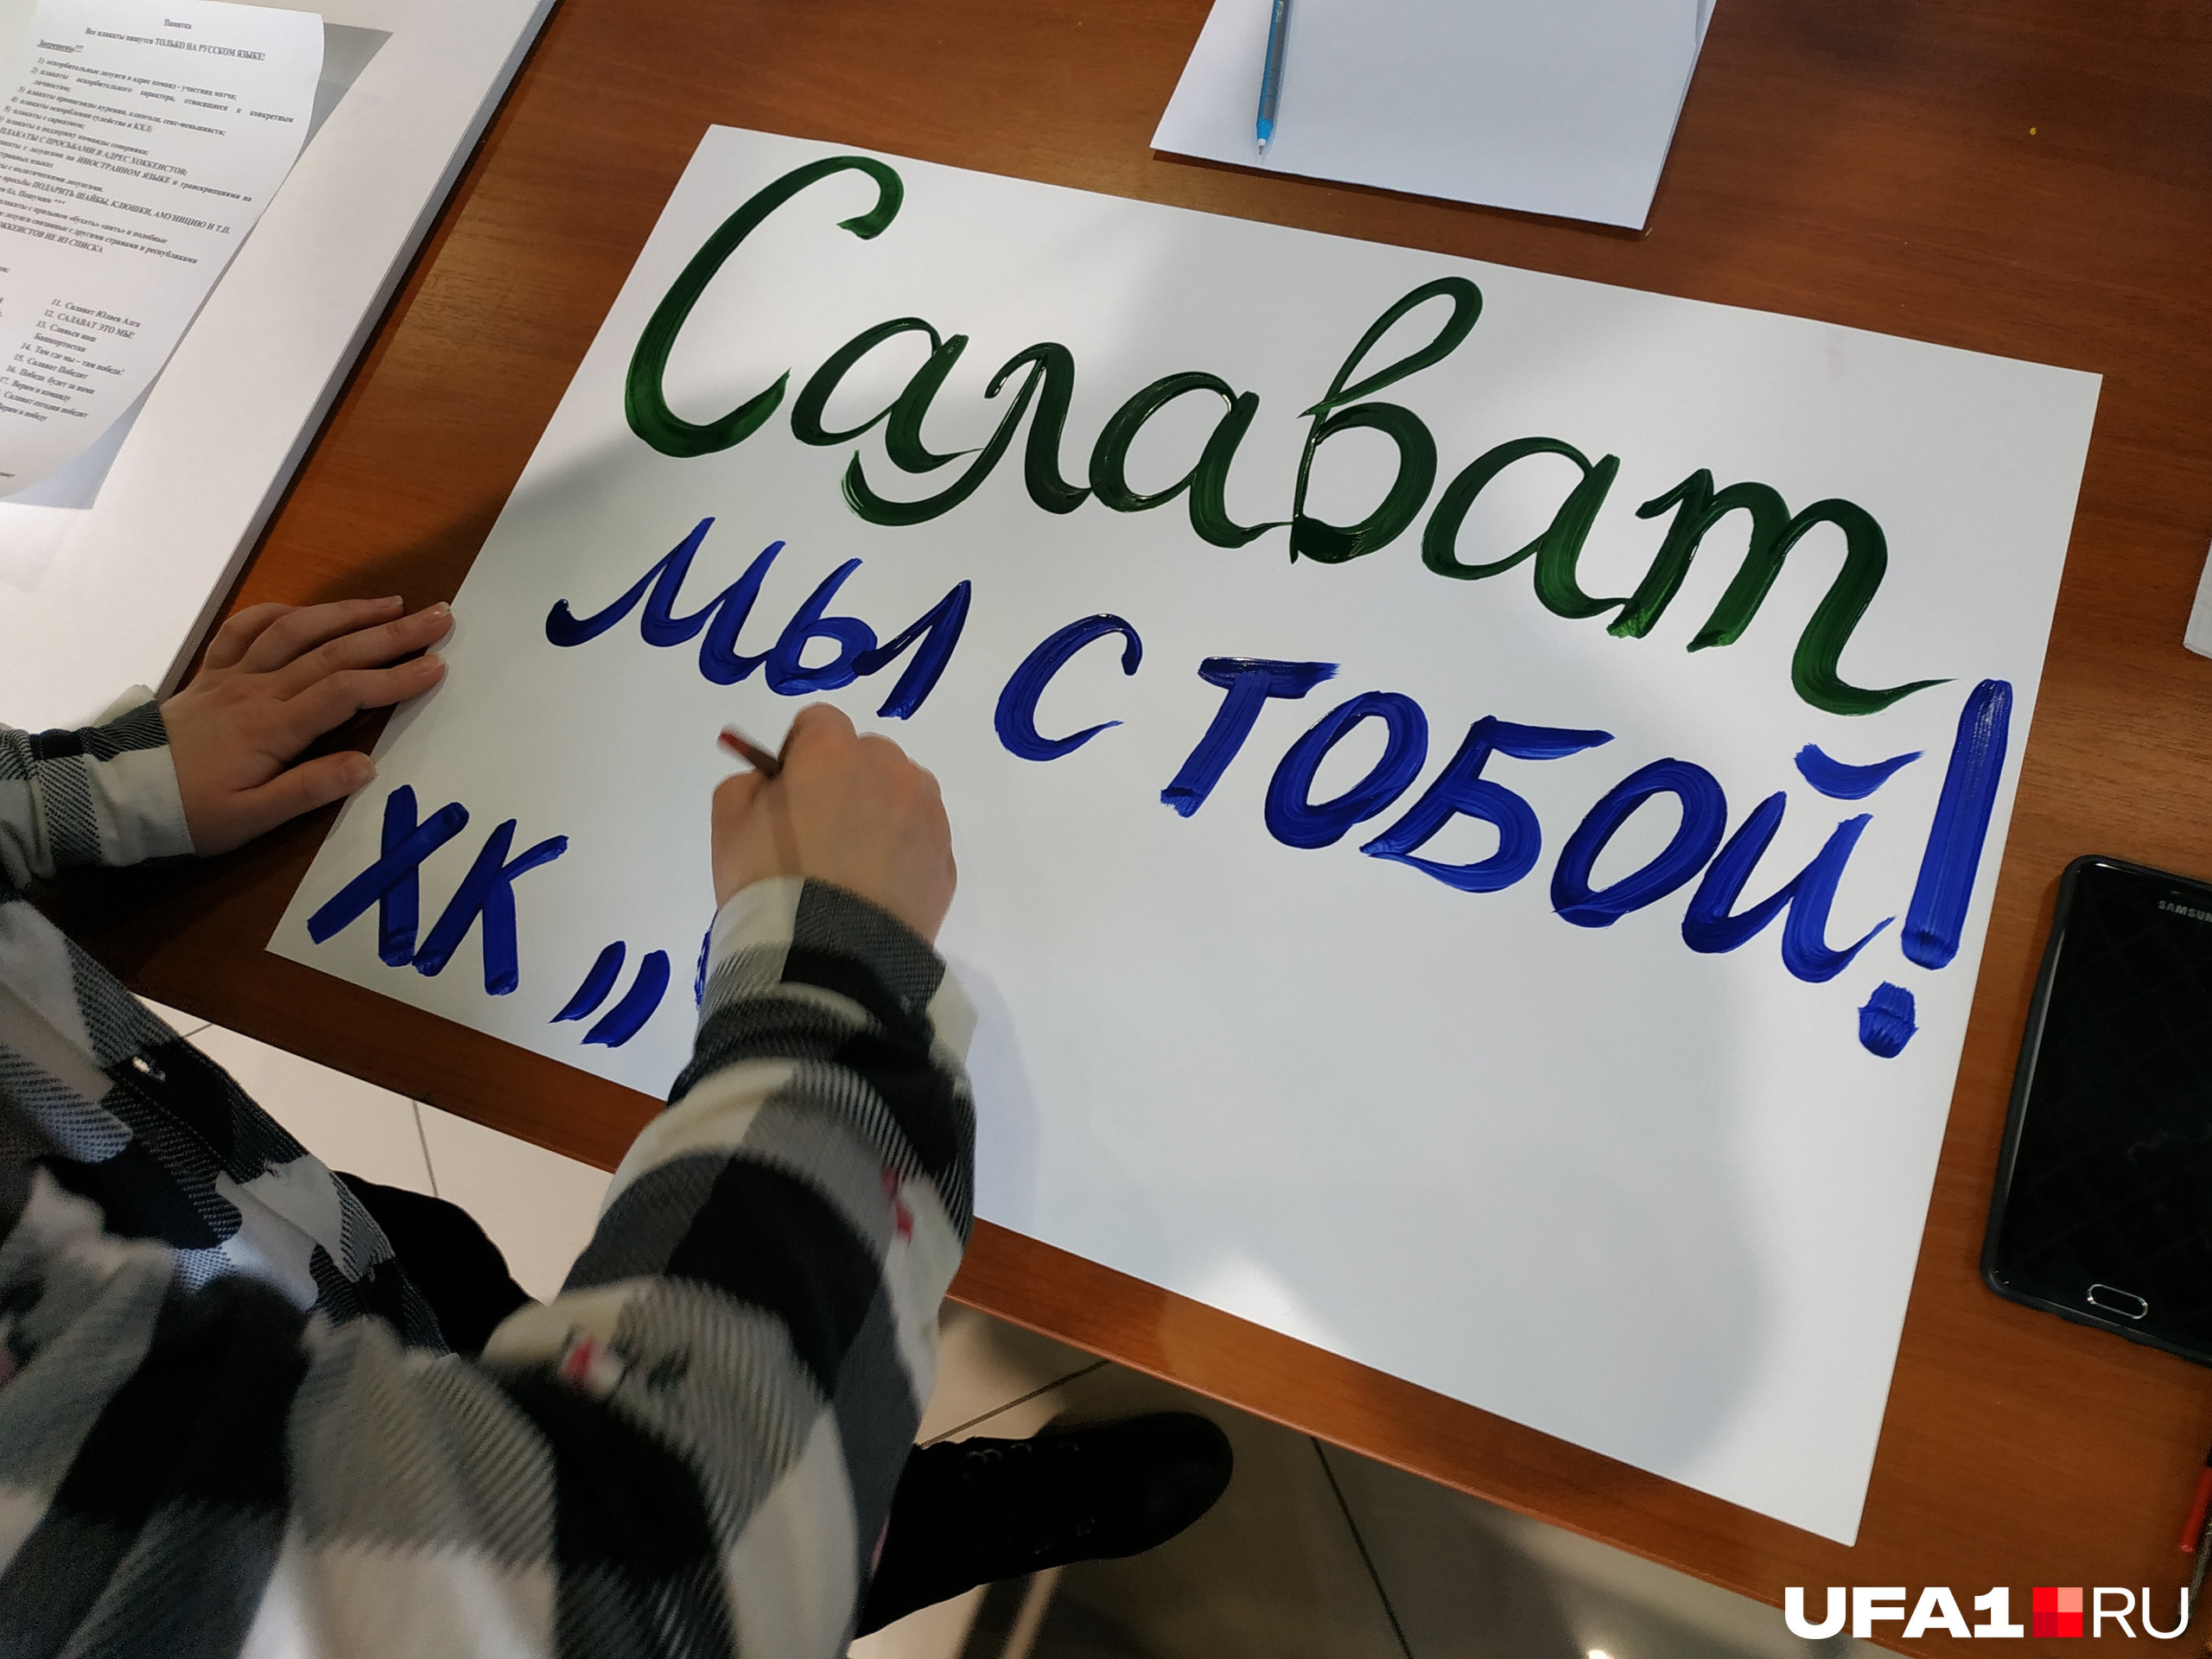 Памятка
Все плакаты пишутся ТОЛЬКО НА РУССКОМ ЯЗЫКЕ!
Запрещены!!!
1) оскорбительные лозунги в адрес команд - участниц матча;
2) плакаты оскорбительного характера, относящиеся к конкретным
личностям;
3) плакаты пропаганды курения, алкоголя, секс-меньшинств;
4) плакаты оскорбления судейства и КХЛ;
5) плакаты с сарказмом;
плакаты в поддержку команды соперника;
ПЛАКАТЫ С ПРОСЬБАМИ В АДРЕС ХОККЕИСТОВ;
с лозунгами на ИНОСТРАННОМ ЯЗЫКЕ и транскрипциями на
языках
с политическими лозунгами.
просьбы ПОДАРИТЬ ШАЙБЫ, КЛЮШКИ, АМУНИЦИЮ И Т.П.
Пошумим
плакаты с призывом «бухать» «пить» и подобные
лозунги связанные с другими странами и республиками
ХОККЕИСТОВ НЕ ИЗ СПИСКА
11. Салават Юлаев Алга
12. САЛАВАТ ЭТО МЫ!
13. Славься наш
Башкортостан
14. Там где мы – там победа!
15. Салават Победит
16. Победа будет за нами
17. Верим в команду
Салават сегодня победит
Верим в победу
Салават
мы с ТОБОЙ!
ХК „
SAMSUNG
UFA1 RU